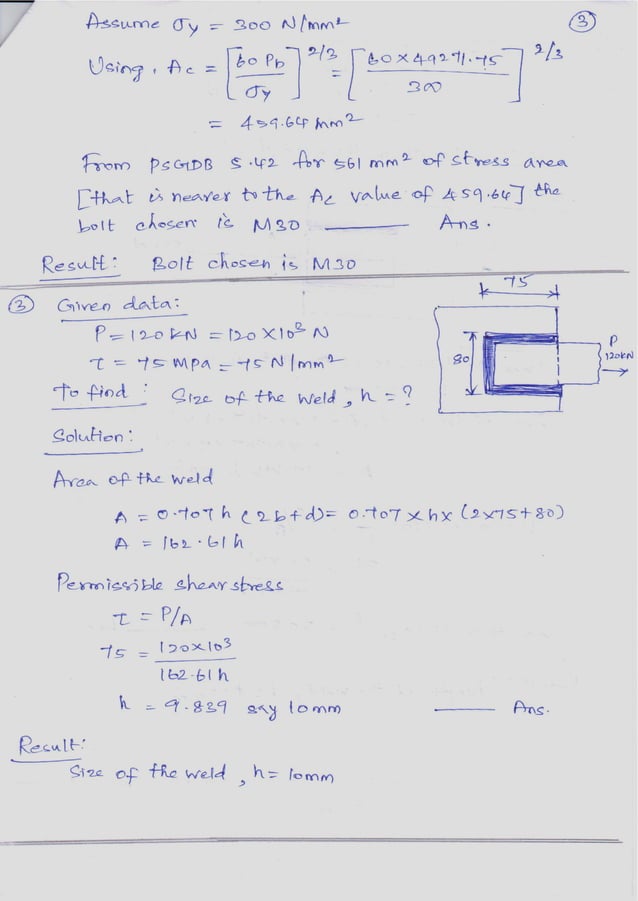 Assume σy = 300 N/mm² ③
Using, Ac = [60 Pb / σy]^2/3 = [60 × 49271.75 / 300]^2/3
= 459.64 mm²
From PSGDB 5.42 for 561 mm² of stress area
[that is nearer to the Ac value of 459.64] the
bolt chosen is M30 ——— Ans.
Result: Bolt chosen is M30
③ Given data:
P = 120 kN = 120 × 10³ N
τ = 75 MPa = 75 N/mm²
To find : Size of the weld, h = ?
75
80
P
120kN
Solution:
Area of the weld
A = 0.707 h (2b+d) = 0.707 × h × (2×75+80)
A = 162.61 h
Permissible shear stress
τ = P/A
75 = 120×10³ / 162.61 h
h = 9.839 say 10mm ——— Ans.
Result:
Size of the weld, h = 10mm